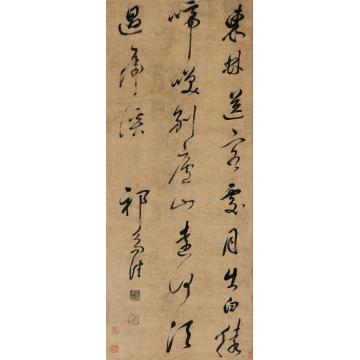 東林送客處月出白猿
啼笑別廬山遠何須
過虎溪
祁豸佳